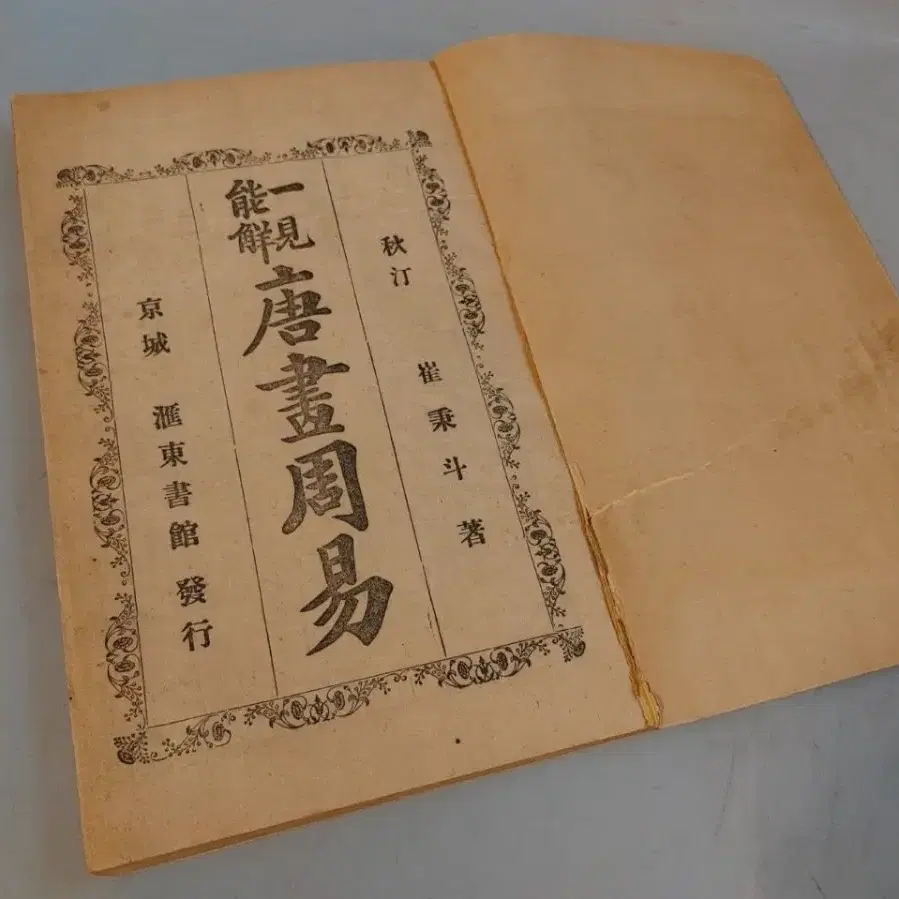 秋汀 崔秉斗 著
一見
能觧
唐畫周易
京城 滙東書館 發行